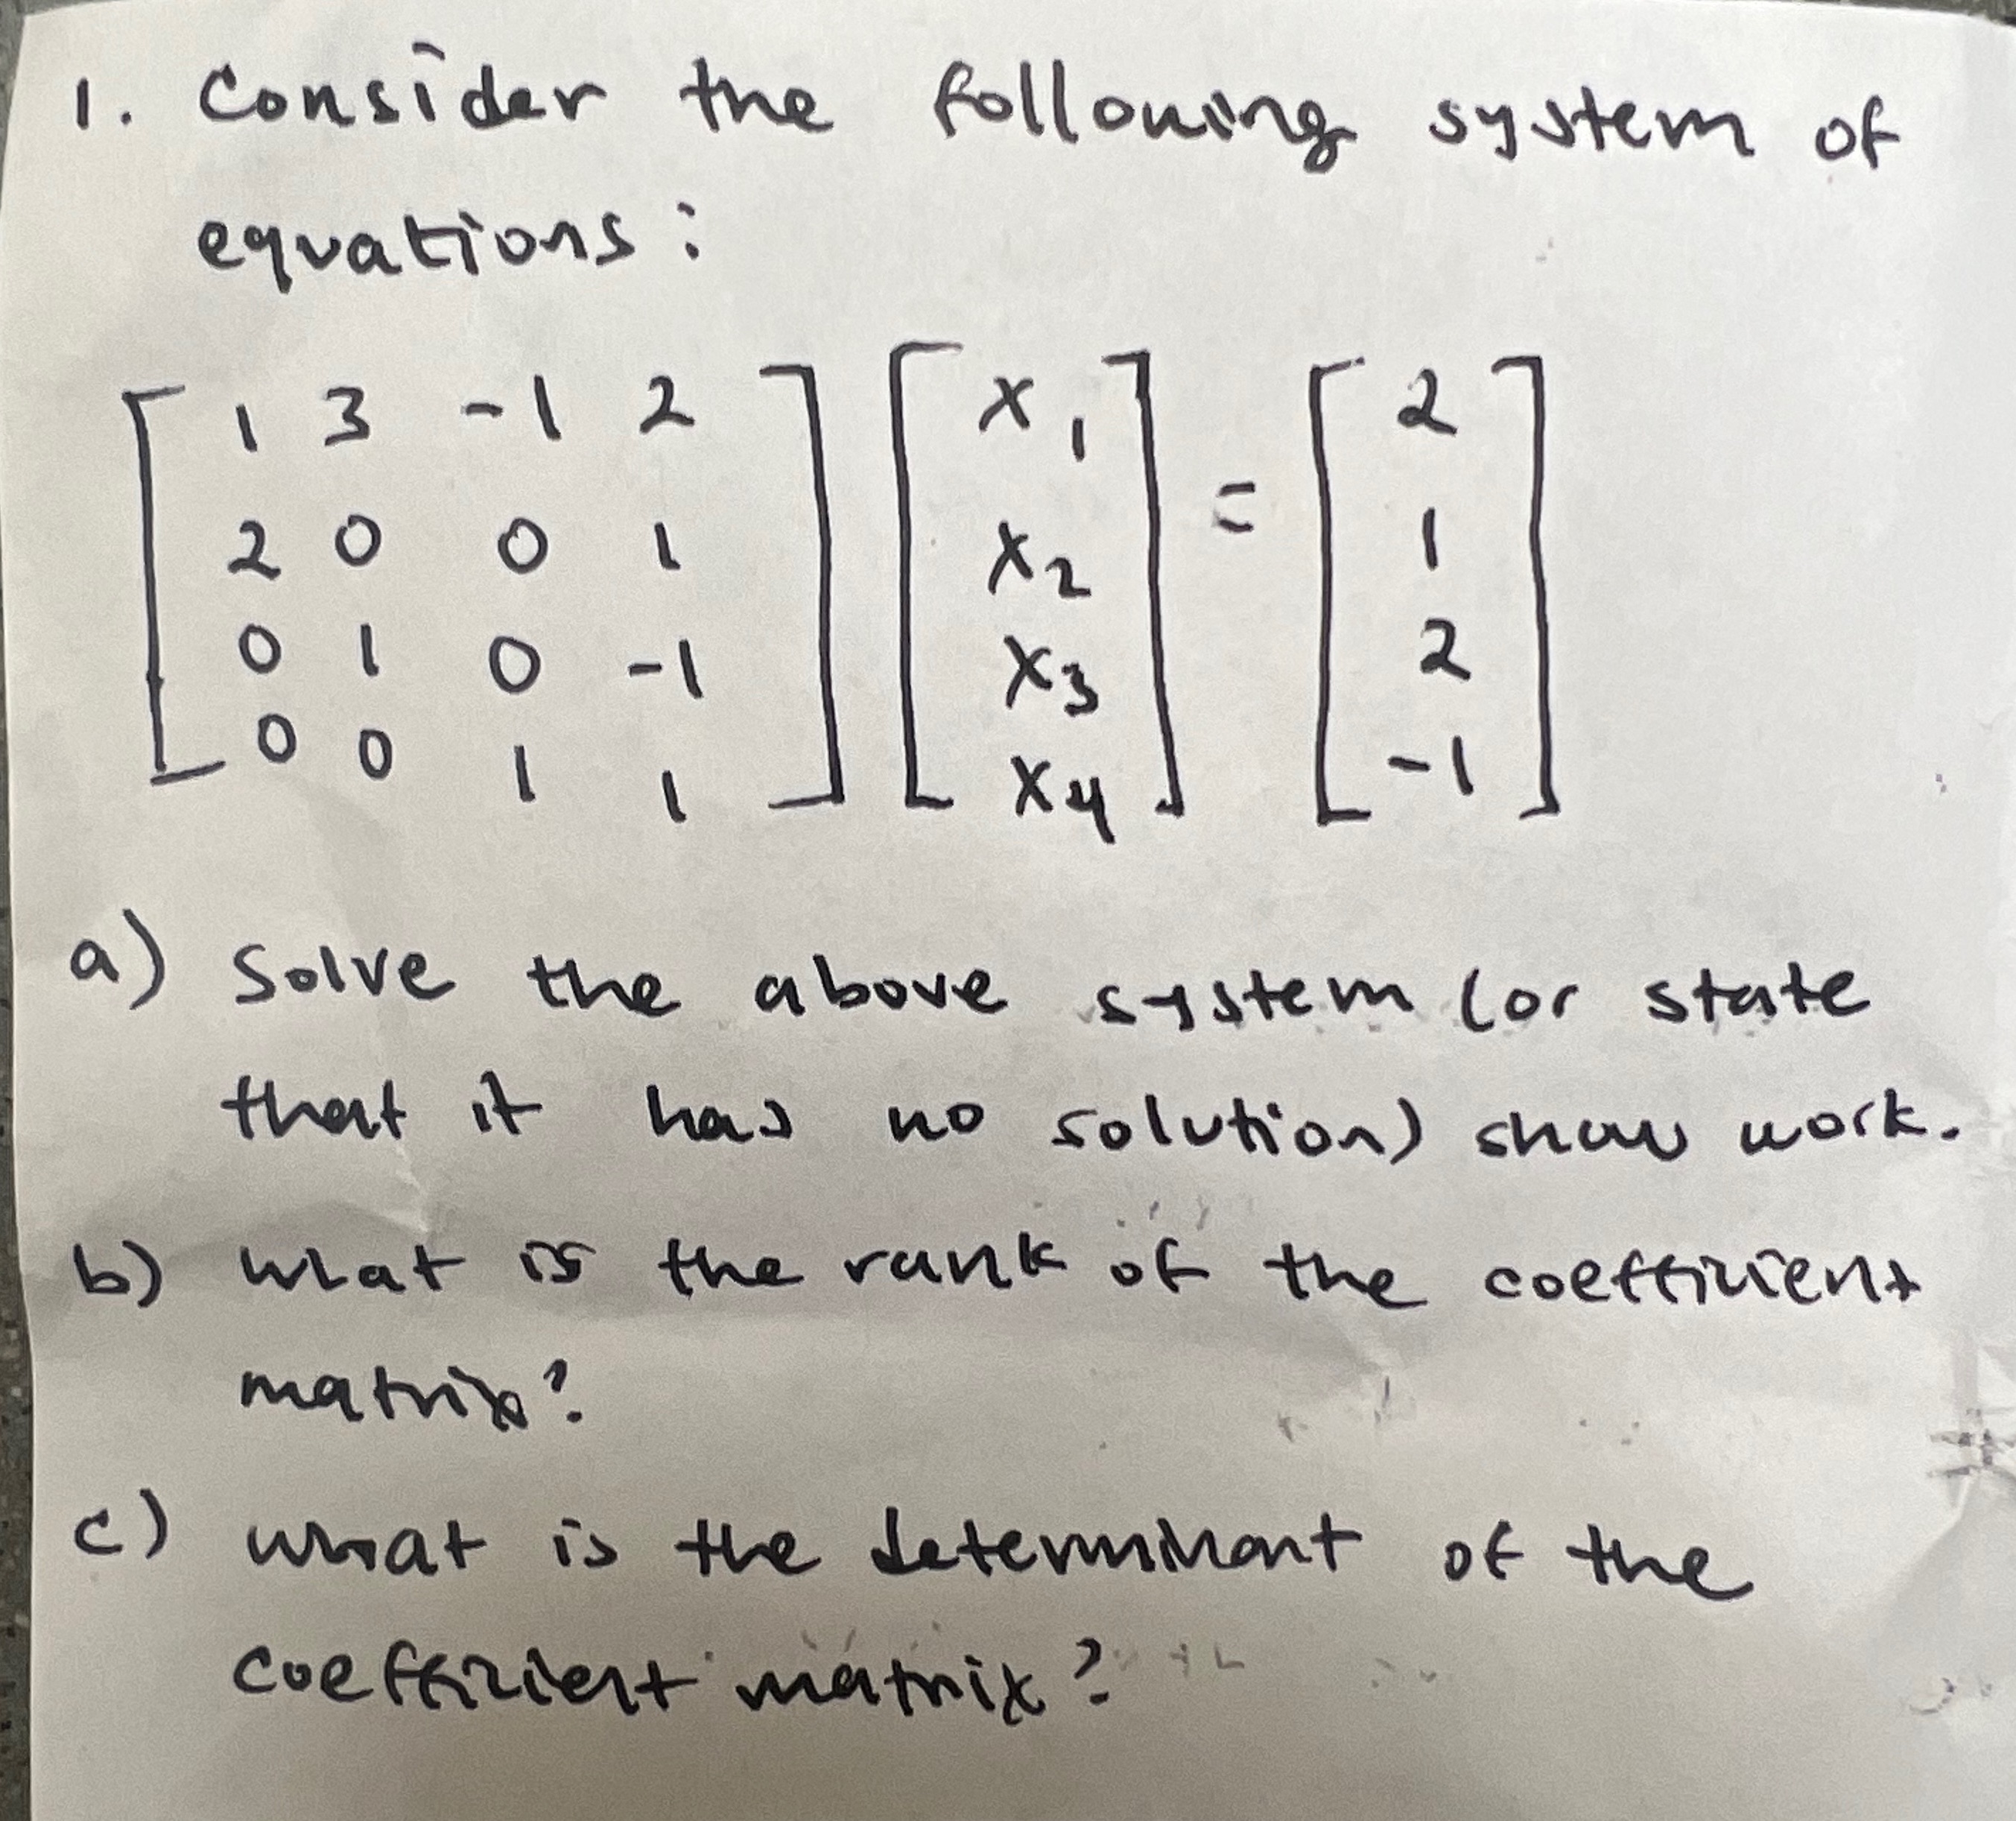 1. Consider the following system of
equations:
[ 1 3 -1 2 ] [ x1 ] = [ 2 ]
[ 2 0 0 1 ] [ x2 ] [ 1 ]
[ 0 1 0 -1 ] [ x3 ] [ 2 ]
[ 0 0 1 1 ] [ x4 ] [ -1 ]
a) Solve the above system (or state
that it has no solution) show work.
b) what is the rank of the coefficient
matrix?
c) what is the determinant of the
coefficient matrix?